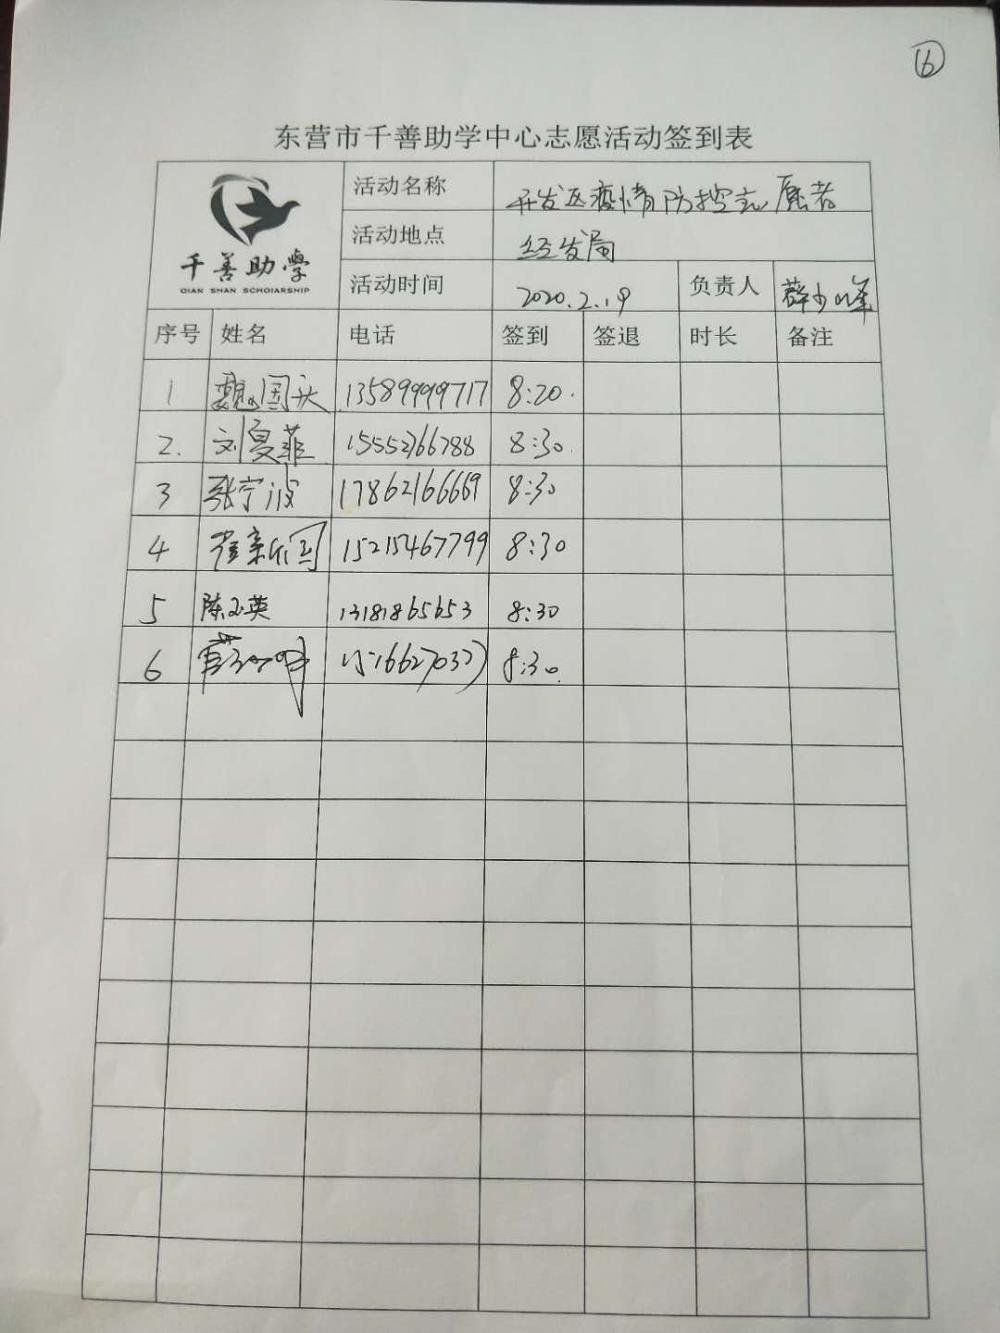 16
东营市千善助学中心志愿活动签到表
千善助學
QIAN SHAN SCHOLARSHIP
活动名称 开发区疫情防控志愿者
活动地点 经发局
活动时间 2020.2.19 负责人 薛少峰
序号 姓名 电话 签到 签退 时长 备注
1 魏国庆 13589999717 8:20.
2. 刘夏菲 15552766788 8:30.
3 张宁波 17862166669 8:30
4 崔新国 15215467799 8:30
5 陈玉英 13181865653 8:30
6 8:30.